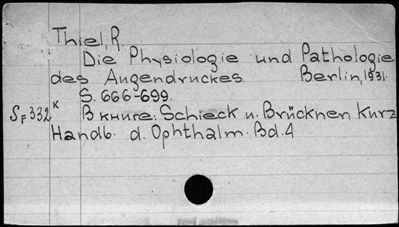 Thiel, R.
Die Physiologie und Pathologie
des Augendruckes. Berlin, 1931.
S. 666-699.
SF 332 K В книге: Schieck u. Brücknen Kurz
Handb. d. Ophthalm. Bd. 4